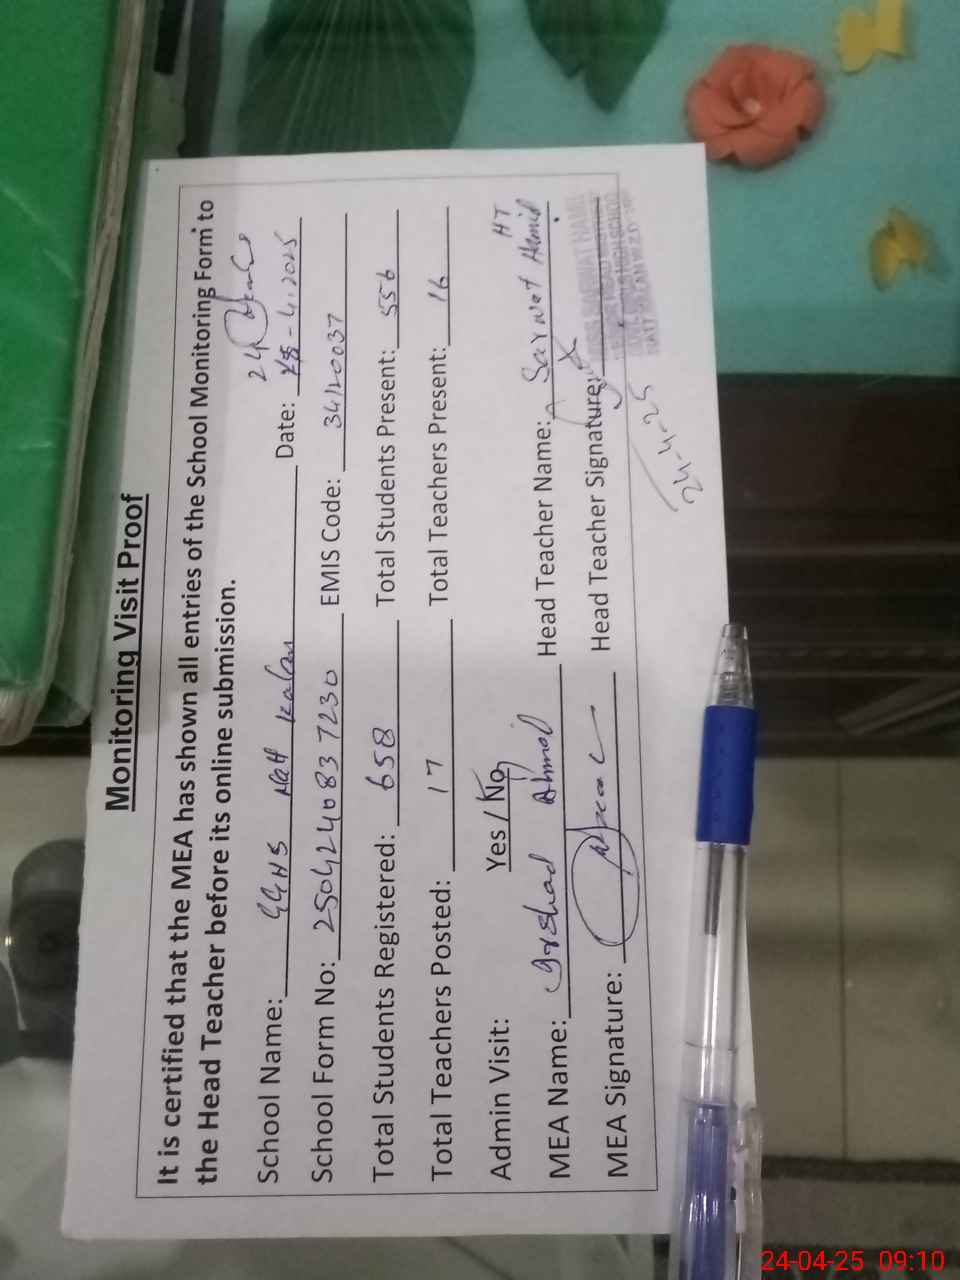 Monitoring Visit Proof
It is certified that the MEA has shown all entries of the School Monitoring Form to
the Head Teacher before its online submission.
24
School Name: GGHS Natt Kalan Date: -4.2025
School Form No: 2504240837230 EMIS Code: 34120037
Total Students Registered: 658 Total Students Present: 556
Total Teachers Posted: 17 Total Teachers Present: 16
Admin Visit: Yes / No
HT
MEA Name: Arshad Ahmad Head Teacher Name: Sarwat Hamid
MEA Signature: Head Teacher Signature:
24-4-25
24-04-25 09:10